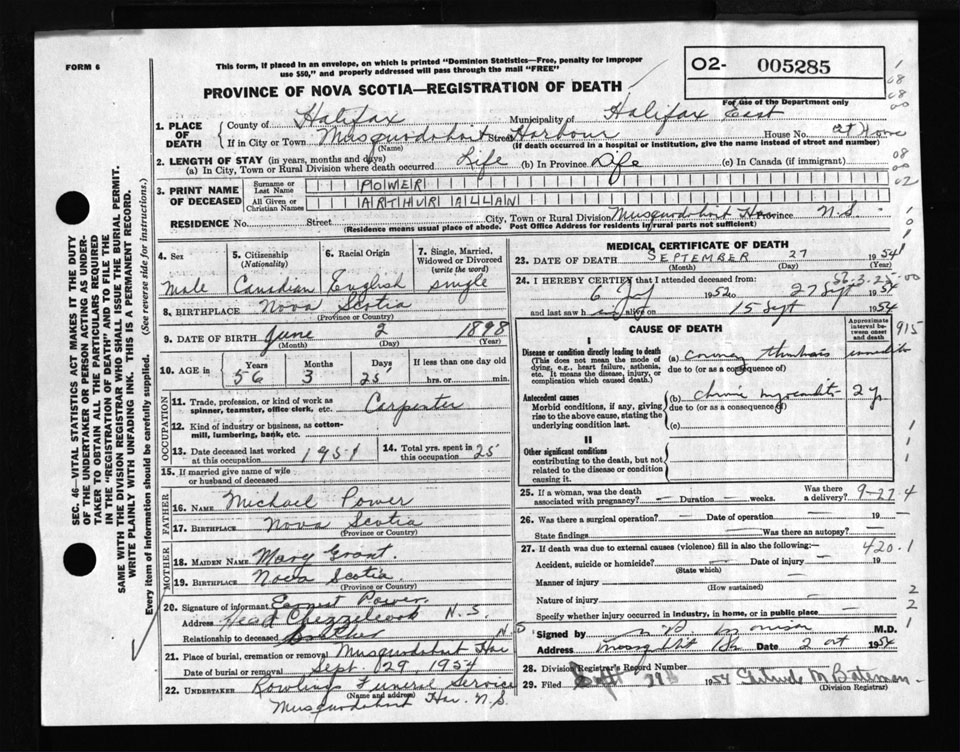 FORM 6
This form, if placed in an envelope, on which is printed "Dominion Statistics—Free, penalty for improper
use $50," and properly addressed will pass through the mail "FREE"
O2- 005285
For use of the Department only
PROVINCE OF NOVA SCOTIA—REGISTRATION OF DEATH
1. PLACE OF DEATH
County of Halifax Municipality of Halifax East
If in City or Town Musquodoboit Street Harbour House No. at Home
(Name) (If death occurred in a hospital or institution, give the name instead of street and number)
2. LENGTH OF STAY (in years, months and days)
(a) In City, Town or Rural Division where death occurred Life (b) In Province Life (c) In Canada (if immigrant)
3. PRINT NAME OF DECEASED
Surname or Last Name POWER
All Given or Christian Names ARTHUR ALLAN
RESIDENCE No. Street City, Town or Rural Division Musquodoboit Har Province N.S.
(Residence means usual place of abode. Post Office Address for residents in rural parts not sufficient)
4. Sex
Male
5. Citizenship
(Nationality)
Canadian
6. Racial Origin
English
7. Single, Married,
Widowed or Divorced
(write the word)
single
8. BIRTHPLACE Nova Scotia
(Province or Country)
9. DATE OF BIRTH June 2 1898
(Month) (Day) (Year)
10. AGE in Years Months Days If less than one day old
56 3 25 hrs. or min.
OCCUPATION
11. Trade, profession, or kind of work as
spinner, teamster, office clerk, etc. Carpenter
12. Kind of industry or business, as cotton-
mill, lumbering, bank, etc.
13. Date deceased last worked
at this occupation 1951
14. Total yrs. spent in
this occupation 25
15. If married give name of wife
or husband of deceased
FATHER
16. NAME Michael Power
17. BIRTHPLACE Nova Scotia
(Province or Country)
MOTHER
18. MAIDEN NAME Mary Grant.
19. BIRTHPLACE Nova Scotia.
(Province or Country)
20. Signature of informant Earnest Power.
Address Head Chezzetcook N.S.
Relationship to deceased Brother
21. Place of burial, cremation or removal Musquodoboit Har
Date of burial or removal Sept. 29 1954
22. UNDERTAKER Rowlings Funeral Service
(Name and address)
Musquodoboit Har. N.S.
MEDICAL CERTIFICATE OF DEATH
23. DATE OF DEATH SEPTEMBER 27 1954
(Month) (Day) (Year)
24. I HEREBY CERTIFY that I attended deceased from:
6 1952 to 27 Sept 1954
and last saw him alive on 15 Sept 1954
CAUSE OF DEATH
Approximate
interval be-
tween onset
and death
915
I
Disease or condition directly leading to death
(This does not mean the mode of
dying, e.g., heart failure, asthenia,
etc. It means the disease, injury, or
complication which caused death.)
(a) coronary thrombosis immediate
due to (or as a consequence of)
Antecedent causes
Morbid conditions, if any, giving
rise to the above cause, stating the
underlying condition last.
(b) chronic myocarditis 2 y
due to (or as a consequence of)
(c)
II
Other significant conditions
contributing to the death, but not
related to the disease or condition
causing it.
25. If a woman, was the death
associated with pregnancy? — Duration — weeks. Was there
a delivery? 9-27-4
26. Was there a surgical operation? — Date of operation — 19 —
State findings Was there an autopsy? —
27. If death was due to external causes (violence) fill in also the following:— 420.1
Accident, suicide or homicide? — Date of injury — 19
(State which)
Manner of injury
(How sustained)
Nature of injury —
Specify whether injury occurred in industry, in home, or in public place —
Signed by M.D.
Address Date 2 Oct 1954
28. Division Registrar's Record Number
29. Filed Sept 29 1954 Gertrude M. Bateman
(Division Registrar)
SEC. 46—VITAL STATISTICS ACT MAKES IT THE DUTY
OF THE UNDERTAKER OR PERSON ACTING AS UNDER-
TAKER TO OBTAIN ALL THE PARTICULARS REQUIRED
IN THE "REGISTRATION OF DEATH" AND TO FILE THE
SAME WITH THE DIVISION REGISTRAR WHO SHALL ISSUE THE BURIAL PERMIT.
WRITE PLAINLY WITH UNFADING INK. THIS IS A PERMANENT RECORD.
Every item of information should be carefully supplied. (See reverse side for instructions.)